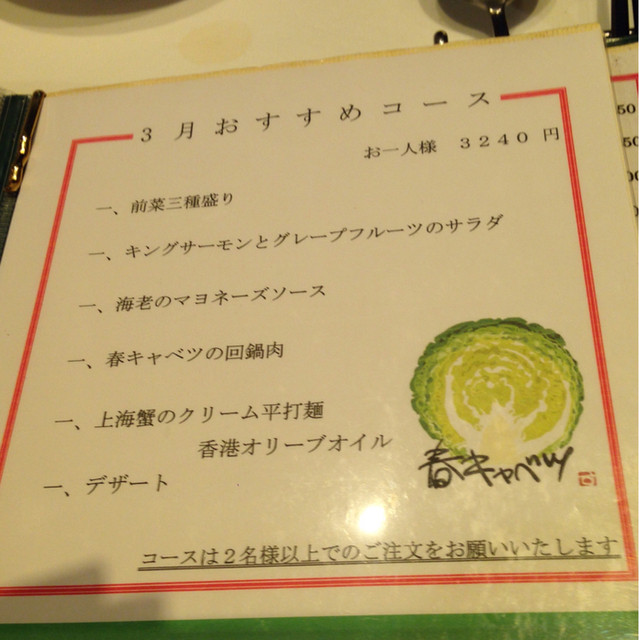 3月おすすめコース
お一人様 3240 円
一、前菜三種盛り
一、キングサーモンとグレープフルーツのサラダ
一、海老のマヨネーズソース
一、春キャベツの回鍋肉
一、上海蟹のクリーム平打麺
香港オリーブオイル
一、デザート
春キャベツ
コースは2名様以上でのご注文をお願いいたします
50
50